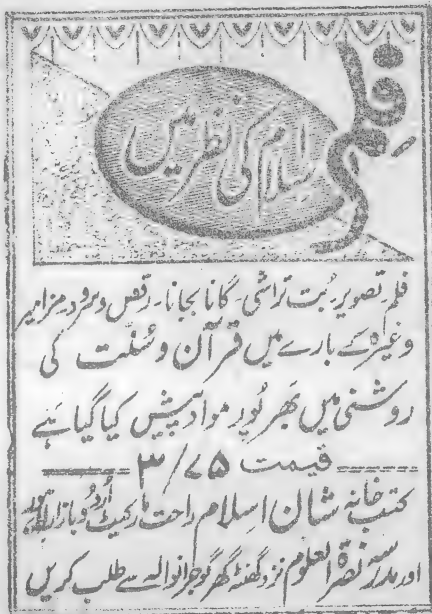 فلم
اسلام کی نظر میں
فلم، تصویر، بت تراشی، گانا بجانا، رقص و سرود، مزامیر
وغیرہ کے بارے میں قرآن و سُنّت کی
روشنی میں بھرپُور مواد پیش کیا گیا ہے
قیمت ۳/۷۵
کتب خانہ شان اسلام راحت مارکیٹ اُردُو بازار لاہور
اور مدرسہ نصرۃ العلوم نزد گھنٹہ گھر گوجرانوالہ سے طلب کریں